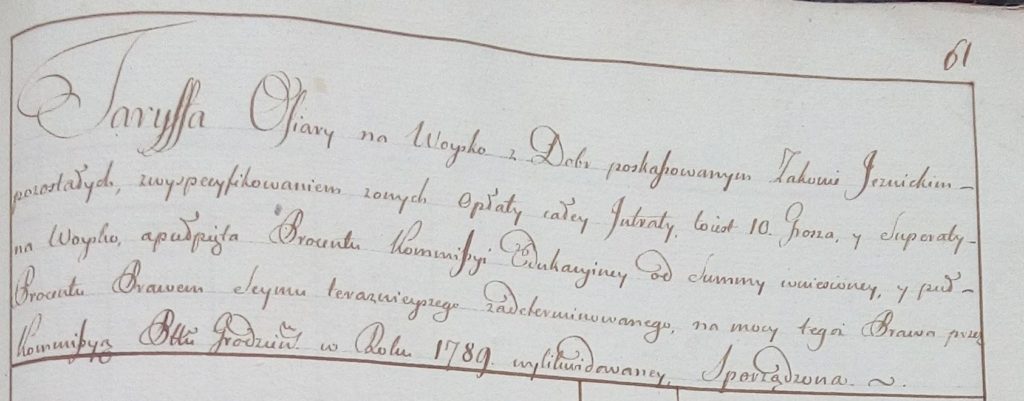 61
Taryffa Ofiary na Woysko z Dobr poskassowanym Zakonie Jezuickim
pozostałych, zwyspecyfikowaniem zonych Opłaty całey Jntraty, toiest 10. Grosza, y Superaty
na Woysko, a pułpięta Procentu Kommissyi Edukacyiney od Summy wniesioney, y puł
Procentu Prawem Seymu terazniejszego zadeterminowanego, na mocy tegoż Prawa przez
Kommissyą Pttu Grodzień. w Roku 1789. wylikwidowaney, Sporządzona